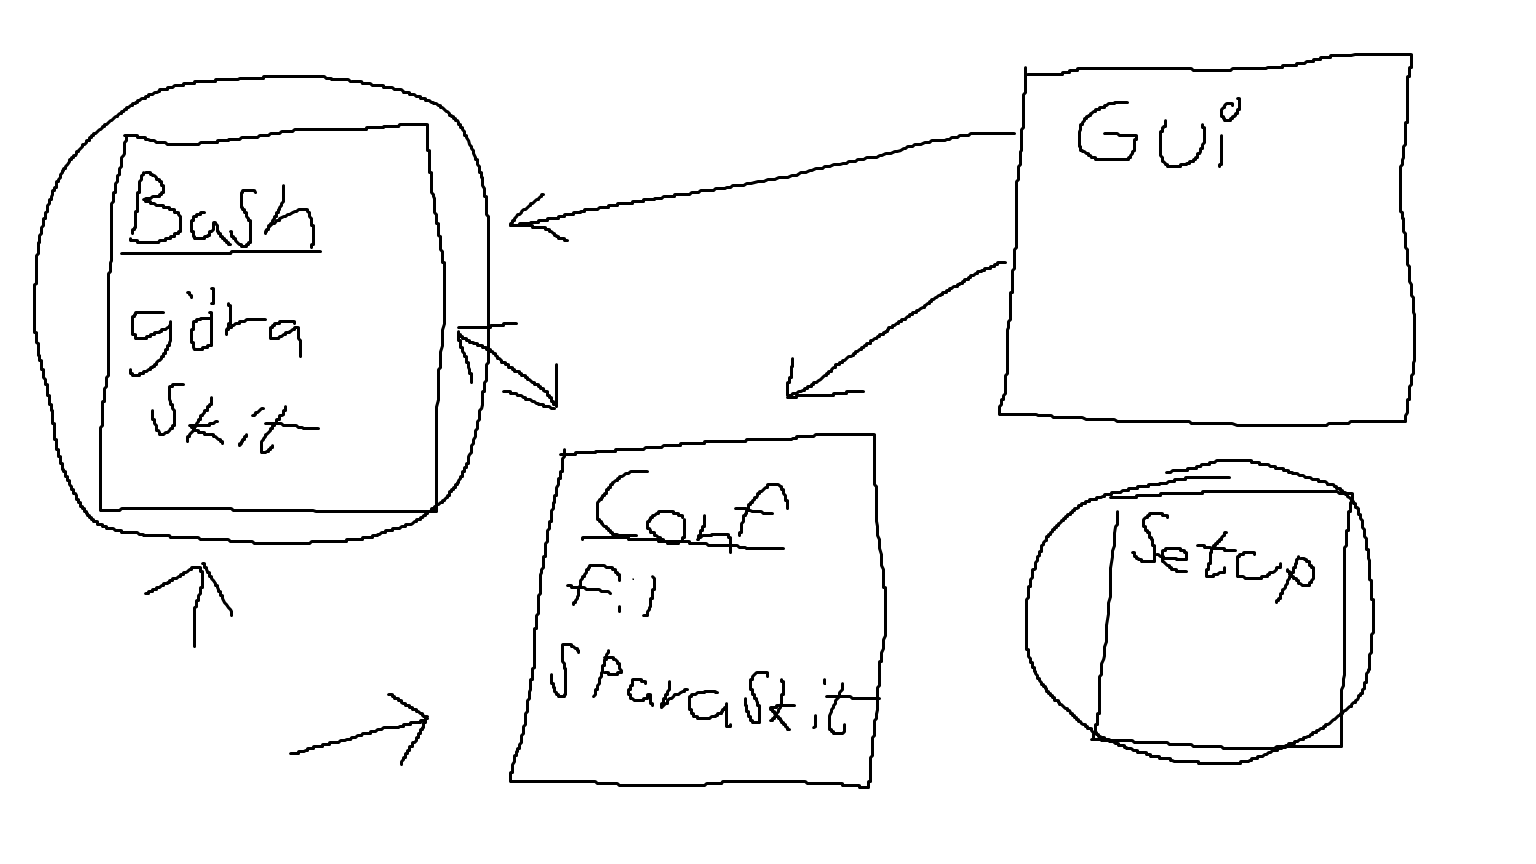 Bash
göra
skit
GUi
Conf
fil
sparaskit
Setup